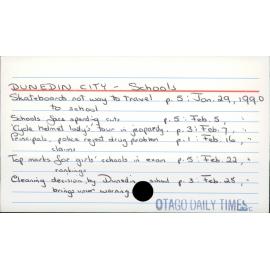 DUNEDIN CITY - Schools
Skateboards not way to travel p. 5: Jan. 29, 1990
to school
Schools face spending cuts p. 5: Feb. 5, "
'Cycle helmet lady's' tour in jeopardy. p. 3: Feb. 7, "
Principals, police reject drug problem p. 1: Feb. 16, "
claims
Top marks for girls' schools in exam p. 5: Feb. 22, "
rankings
Cleaning decision by Dunedin school p. 3: Feb. 28, "
brings union warning
OTAGO DAILY TIMES